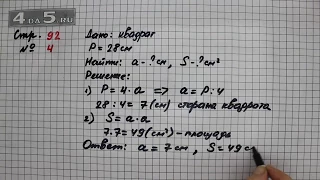 4DA5.RU
Стр. 92
№ 4
Дано: квадрат
P = 28 см
Найти: a - ? см, S - ? см²
Решение:
1) P = 4 · a => a = P : 4
28 : 4 = 7 (см) сторона квадрата
2) S = a · a
7 · 7 = 49 (см²) – площадь
Ответ: a = 7 см, S = 49 с